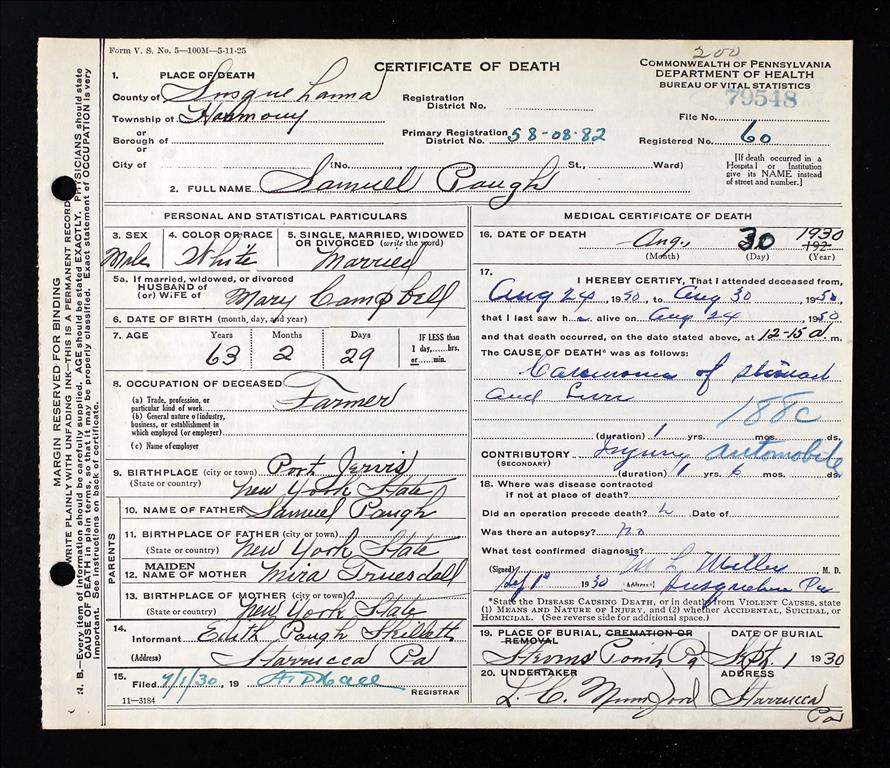 Form V. S. No. 5—100M—5-11-25
200
CERTIFICATE OF DEATH
COMMONWEALTH OF PENNSYLVANIA
DEPARTMENT OF HEALTH
BUREAU OF VITAL STATISTICS
79548
File No.
1. PLACE OF DEATH
County of Susquehanna
Township of Harmony
or
Borough of
or
City of
Registration
District No.
Primary Registration
District No. 58-08-82
Registered No. 60
(No. St., Ward)
[If death occurred in a
Hospital or Institution
give its NAME instead
of street and number.]
2. FULL NAME Samuel Paugh
PERSONAL AND STATISTICAL PARTICULARS
3. SEX
Male
4. COLOR OR RACE
White
5. SINGLE, MARRIED, WIDOWED
OR DIVORCED (write the word)
Married
5a. If married, widowed, or divorced
HUSBAND of
(or) WIFE of Mary Campbell
6. DATE OF BIRTH (month, day, and year)
7. AGE Years Months Days
63 2 29
IF LESS than
1 day,....hrs.
or....min.
8. OCCUPATION OF DECEASED
(a) Trade, profession, or
particular kind of work Farmer
(b) General nature of industry,
business, or establishment in
which employed (or employer)
(c) Name of employer
9. BIRTHPLACE (city or town) Port Jervis
(State or country) New York State
PARENTS
10. NAME OF FATHER Samuel Paugh
11. BIRTHPLACE OF FATHER (city or town)
(State or country) New York State
12. MAIDEN
NAME OF MOTHER Mira Truesdell
13. BIRTHPLACE OF MOTHER (city or town)
(State or country) New York State
14.
Informant Edith Paugh
(Address) Starrucca Pa
15.
Filed 9/1/30, 19
REGISTRAR
11—3184
MEDICAL CERTIFICATE OF DEATH
16. DATE OF DEATH Aug. 30 1930
192
(Month) (Day) (Year)
17.
I HEREBY CERTIFY, That I attended deceased from
Aug 24, 1930, to Aug 30 1930,
that I last saw h alive on Aug 24 1930
and that death occurred, on the date stated above, at 12-15 a. m.
The CAUSE OF DEATH* was as follows:
Carcinoma of stomach
and Liver
188c
(duration) 1 yrs. mos. ds.
CONTRIBUTORY Injury automobile
(SECONDARY)
(duration) 1 6 mos. ds.
18. Where was disease contracted
if not at place of death?
Did an operation precede death? Date of
Was there an autopsy? no
What test confirmed diagnosis?
(Signed) M L Miller M. D.
1930 (Address) Susquehanna Pa
*State the DISEASE CAUSING DEATH, or in death from VIOLENT CAUSES, state
(1) MEANS AND NATURE OF INJURY, and (2) whether ACCIDENTAL, SUICIDAL, or
HOMICIDAL. (See reverse side for additional space.)
19. PLACE OF BURIAL, CREMATION OR
REMOVAL
DATE OF BURIAL
Pa Sept. 1 1930
20. UNDERTAKER
L. C. Mumford
ADDRESS
Starrucca
Pa
MARGIN RESERVED FOR BINDING
WRITE PLAINLY WITH UNFADING INK—THIS IS A PERMANENT RECORD
N. B.—Every item of information should be carefully supplied. AGE should be stated EXACTLY. PHYSICIANS should state
CAUSE OF DEATH in plain terms, so that it may be properly classified. Exact statement of OCCUPATION is very
important. See instructions on back of certificate.